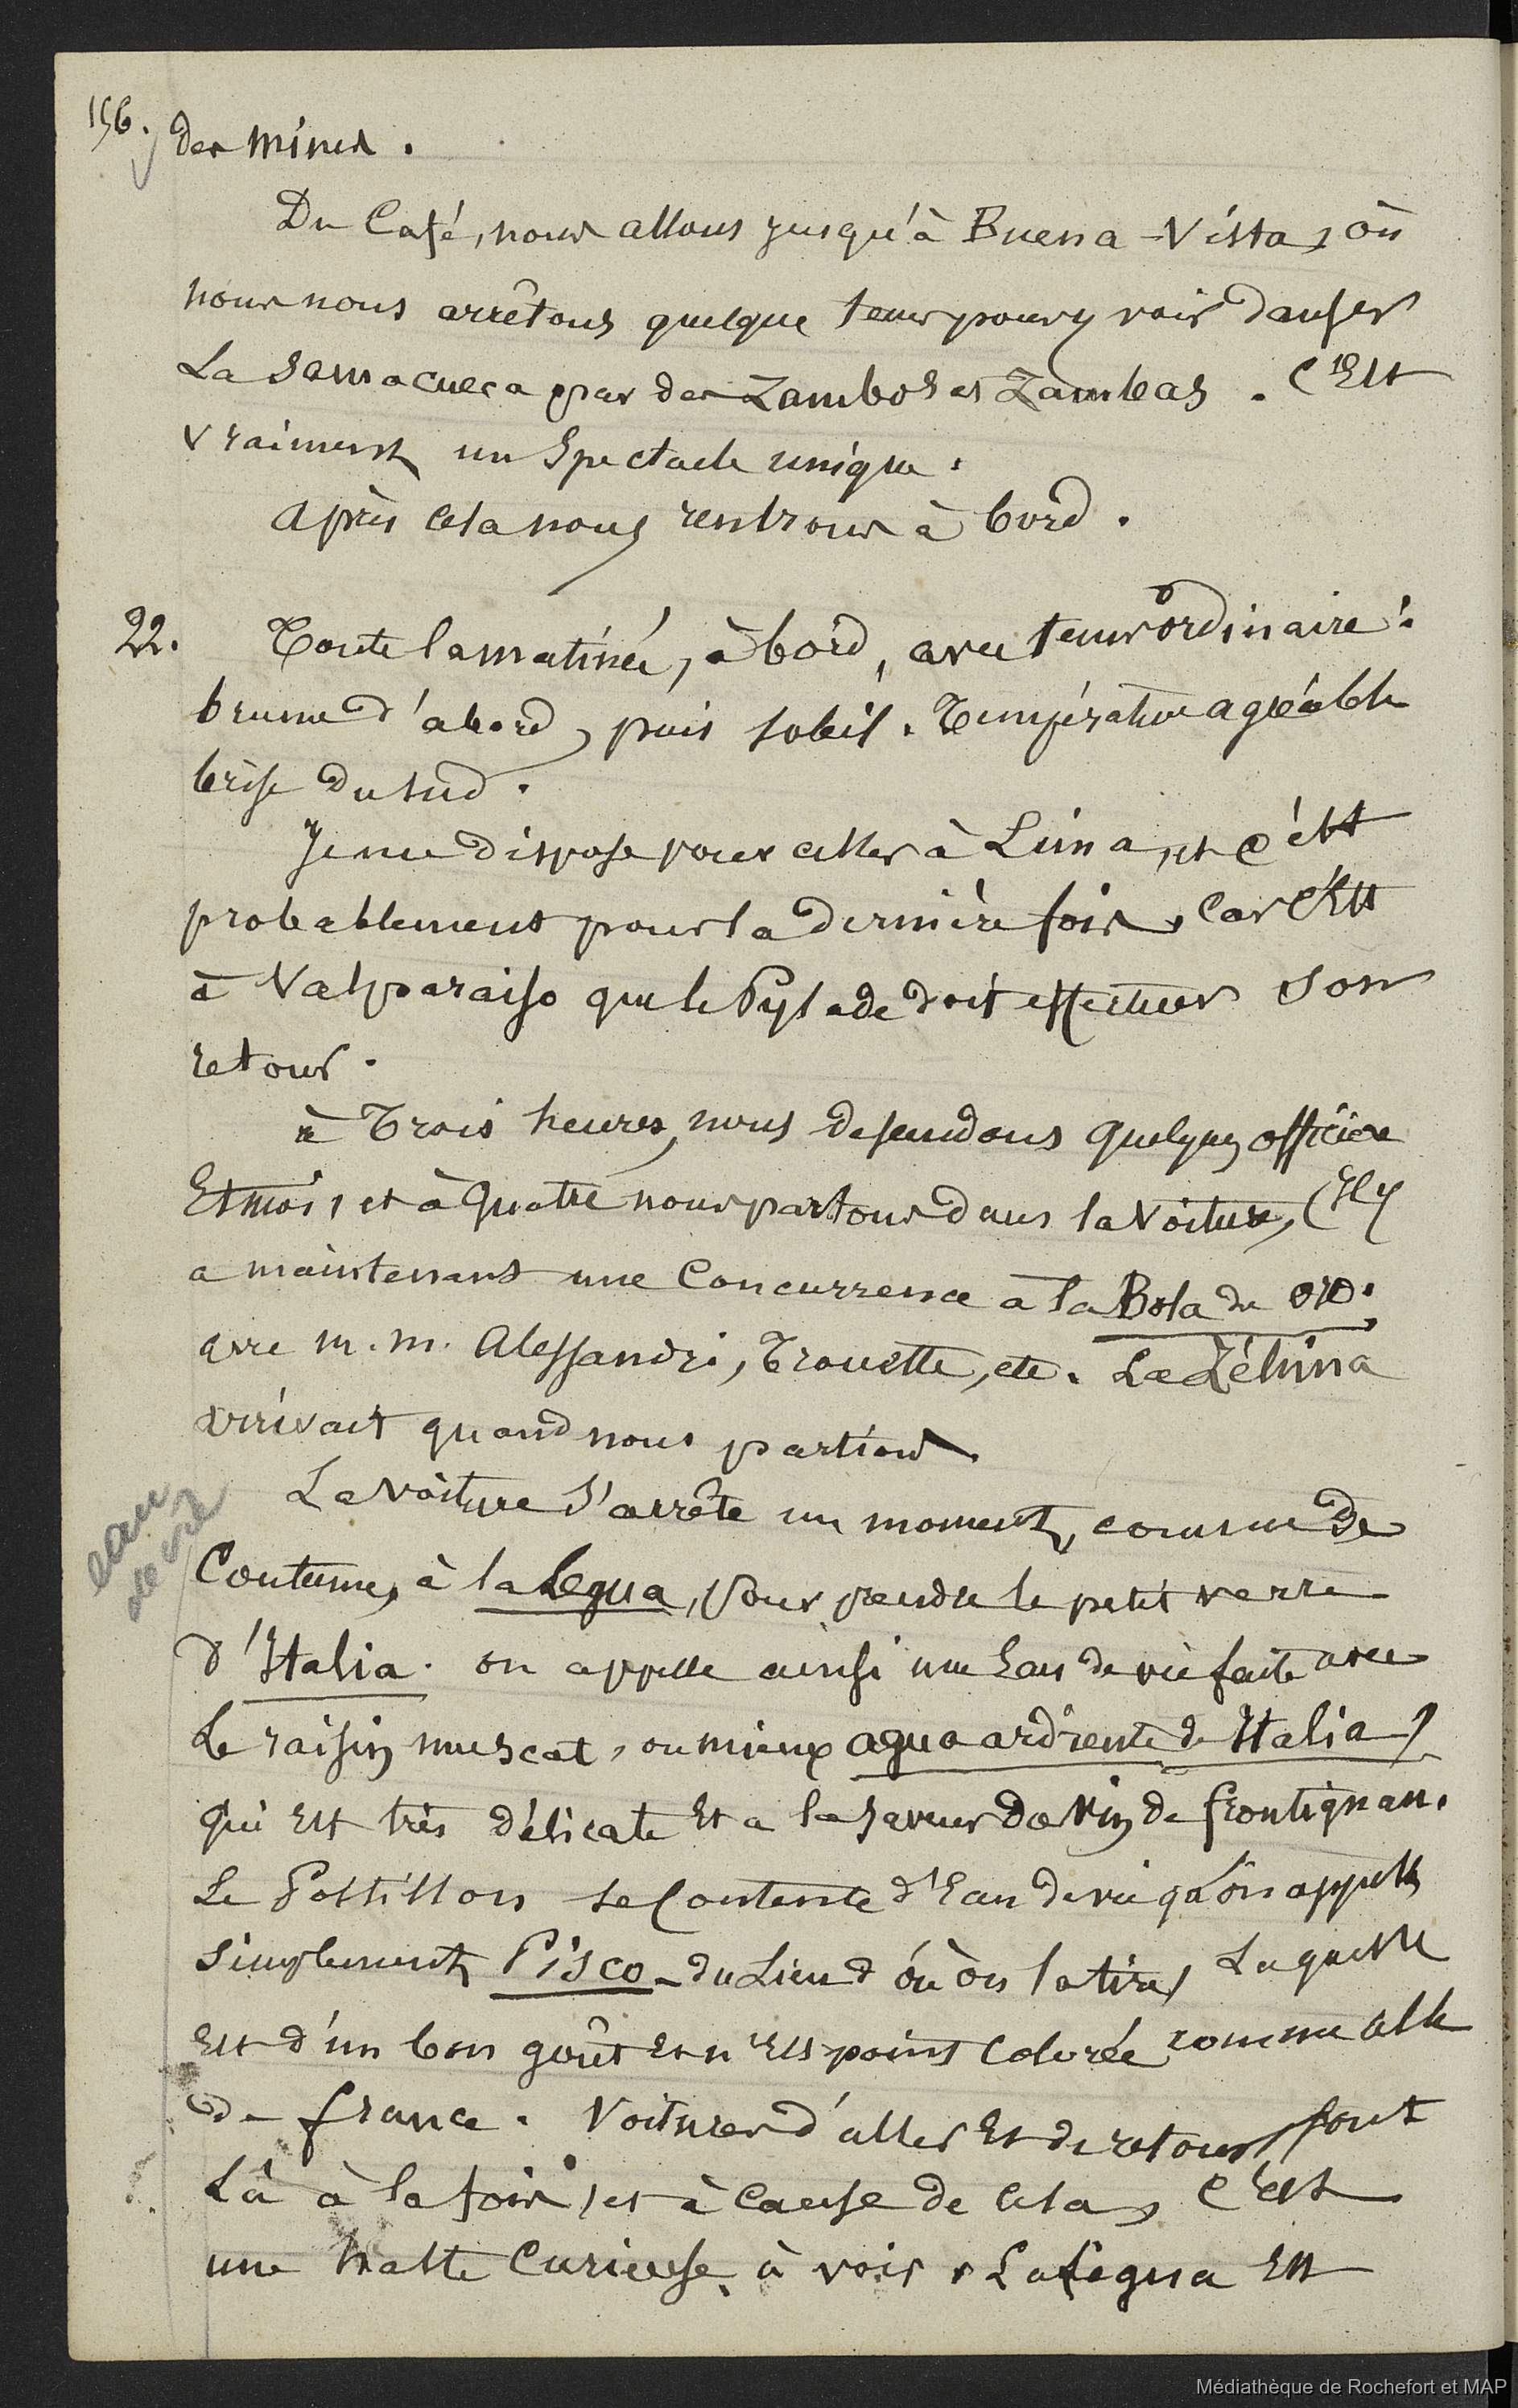 156. des mines.
Du Café, nous allons jusqu'à Buena-Vista, où
nous nous arrêtons quelque tems pour y voir danser
La Samacueca par des Zambos et Zambas. C'Est
vraiment un Spectacle unique.
après cela nous rentrons à bord.
22. Toute la matinée, à bord, avec tems ordinaire:
brume d'abord, puis soleil. Température agréable
brise du sud.
Je me dispose pour aller à Lima, et c'est
probablement pour la dernière fois, Car c'Est
à Valparaiso que le Pylade doit effectuer son
retour.
à Trois heures, nous descendons quelques officiers
Et moi, et à Quatre nous partons dans la Voiture, (Il y
a maintenant une Concurrence à la Bola de oro.
avec m. m. Alessandri, Trouette, etc. La Zélima
arrivait quand nous partions.
La voiture S'arrête un moment, comme de
Coutume, à la Legua, pour prendre le petit verre
d'Italia. on appelle ainsi une Eau de vie faite avec
Le raisin muscat, ou mieux agua ardiente de Italia,
qui Est très délicate Et a la saveur du Vin de frontignan.
Le Postillon se Contente d'Eau de vie qu'on appelle
simplement Pisco - du Lieu d'où on la tire, Laquelle
Est d'un bon goût Et n'Est point Colorée comme celle
de france. Voitures d'aller Et de retour, sont
Là à la fois, et à Cause de Cela, C'est
une halte Curieuse à voir. La Legua Est
eau
de vie
Médiathèque de Rochefort et MAP